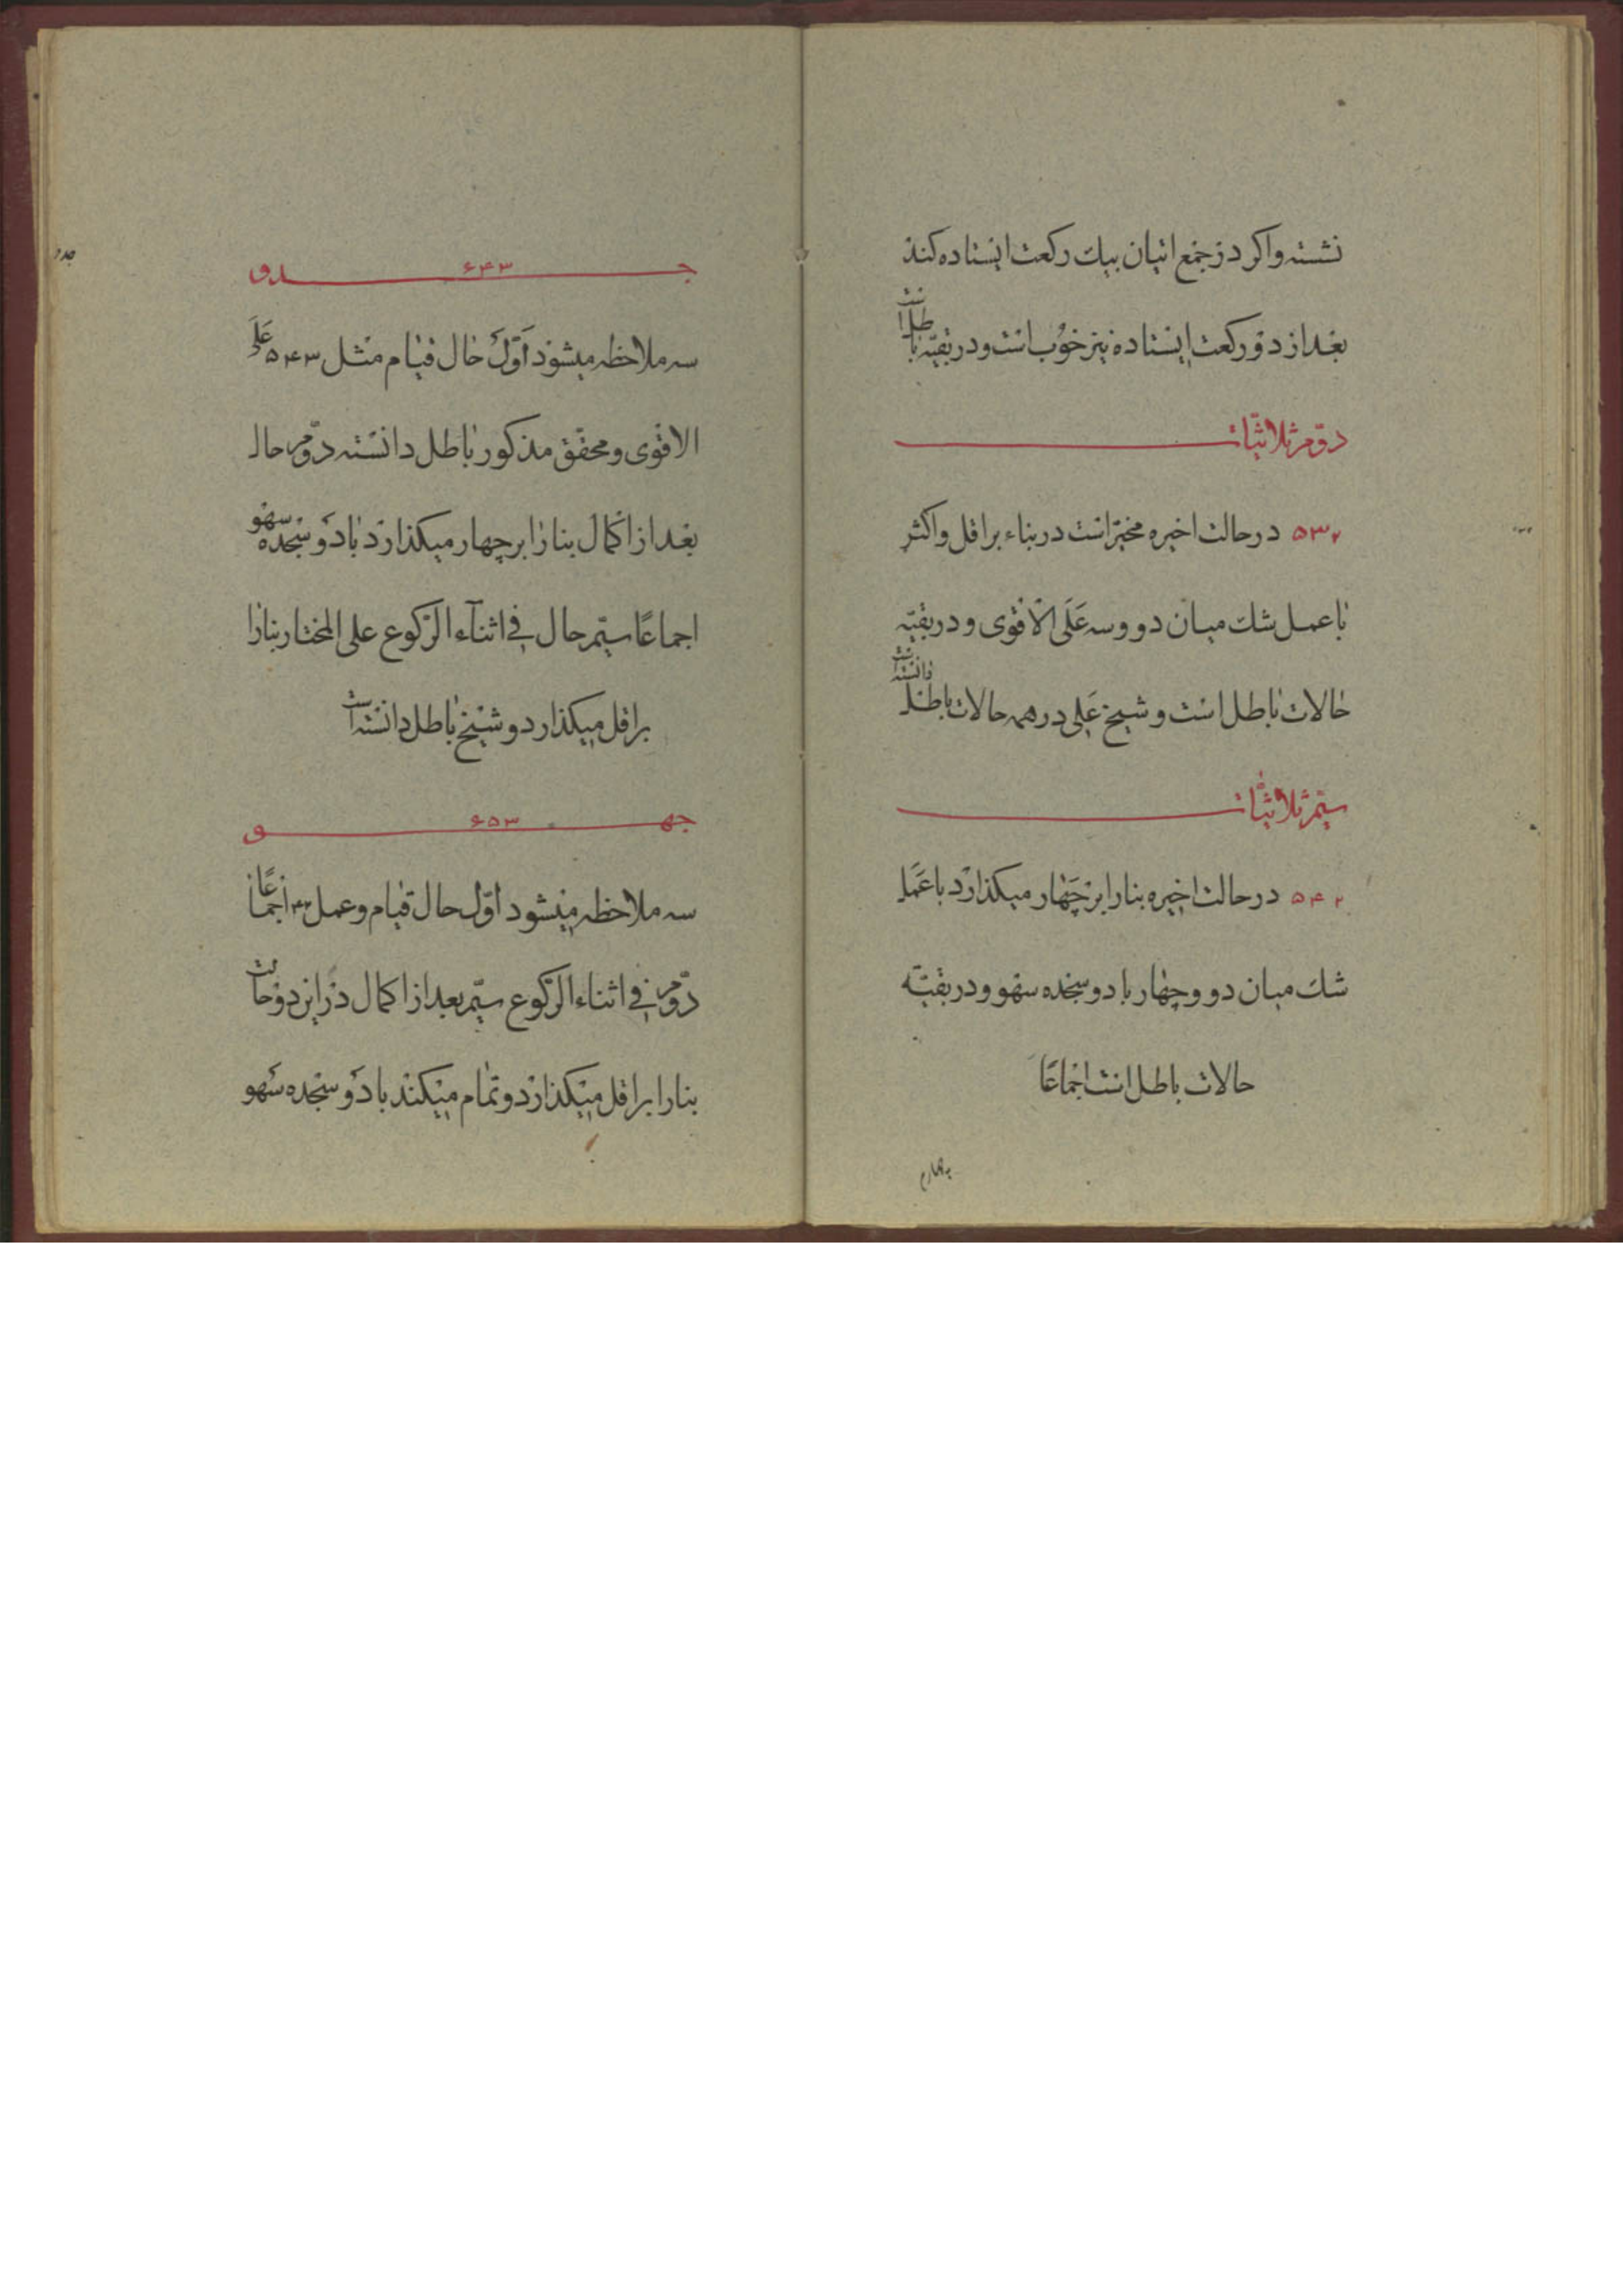 نشسته واکر در جمع اتیان بیك رکعت ایستاده کند
بعد از دو رکعت ایستاده نیز خوب است و در بقیّه باطل است
دوّم ثلاثیّات
۵۳۲ در حالت اخیره مخیّر است در بناء بر اقل واکثر
با عمل شك میان دو وسه عَلَی الاَقوی و در بقیّه
حالات باطل است و شیخ علی در همه حالات باطل دانسته است
سیّم ثلاثیّات
۵۴۲ در حالت اخیره بنا را بر چهار میکذارد با عمل
شك میان دو وچهار با دو سجده سهو و در بقیّه
حالات باطل است اجماعًا
چهارم
جدو
جـ ۶۴۳ ـدو
سه ملاحظه میشود اوّل حال قیام مثل ۵۴۳ عَلَی
الاقوی و محقّق مذکور باطل دانسته دوّم حال
بعد از اکمال بنا را بر چهار میکذارد با دو سجده سهو
اجماعًا سیّم حال فی اثنآء الرّکوع علی المختار بنا را
بر اقل میکذارد و شیخ باطل دانسته است
جهـ ۶۵۳ ـو
سه ملاحظه میشود اوّل حال قیام و عمل ۴۳ اجماعًا
دوّم فی اثناء الرّکوع سیّم بعد از اکمال در این دو حالت
بنا را بر اقل میکذارد و تمام میکند با دو سجده سهو